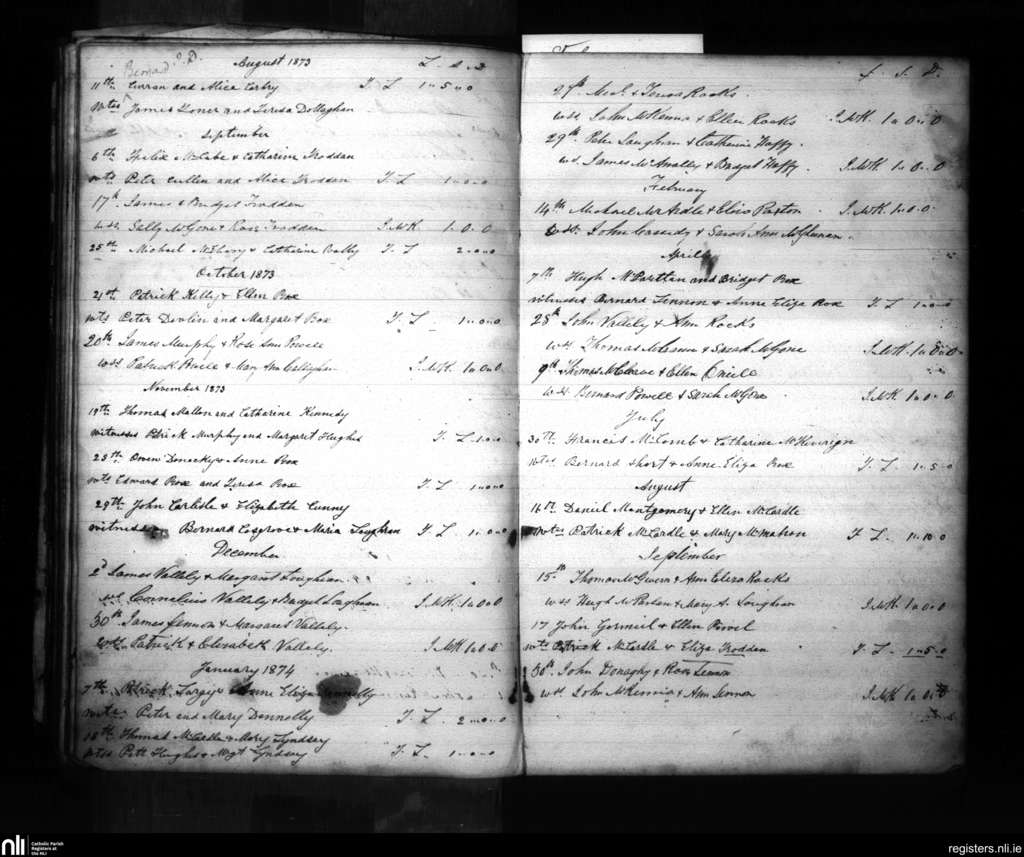 August 1873 L. s. D
Bernard
11th Curran and Alice Corby T L 1"5"0
Wtss James Toner and Teresa Dollaghan
September
6th Felix McCabe & Catharine Troddan
wts Peter Cullen and Alice Troddan T. L 1"0"0
17th James & Bridget Trodden
wss. Rose Trodden J. McK. 1. 0. 0
25th Michael & Catharine T. L 2"0"0
October 1873
21st Patrick Kelly & Ellen Box
wts Peter Devlin and Margaret Box T. L. 1"0"0
20th James Murphy & Rose Ann Powell
wss Patrick & Mary Ann Callaghan J. McK. 1"0"0
November 1873
19th Thomas Mallon and Catharine Kennedy
witnesses Patrick Murphy and Margaret Hughes T. L. 1"0"0
23th Owen Donachy & Anne Box
wts Edward Box and Teresa Box T. L 1"0"0
29th John Carlisle & Elizabeth Cunny
witness Bernard Cosgrove & Maria Loughran T. L 1"0"0
December
2d James Vallely & Margaret Loughran
wss Cornelius Vallely & Bridget Loughran J. McK. 1"0"0
30th James Lennon & Margaret Vallely.
wss. Patrick & Elizabeth Vallely. J. McK 1"0"5
January 1874
7th Patrick & Anne Eliza Donnelly
wts Peter and Mary Donnelly T. L 2"0"0
18th Thomas McCardle & Mary Lyndsey
wtss Patt Hughes & Mgt Lyndsey T. L 1"0"0
£. S. D.
27th & Rocks.
wss John McKenna & Ellen Rocks J. McK. 1"0"0
29th Peter Loughran & Catherine Haffy.
ws. James McAnally & Bridget Haffy. J. McK. 1"0"0
February
14th Michael McArdle & Paxton J. McK. 1"0"0
wss. John Cassidy & Sarah Ann
Aprill
7th Hugh McPartlan and Bridget Box
witnesses Bernard Lennon & Anne Eliza Box T. L 1"0"0
28th John Vallely & Ann Rocks
wss Thomas & Sarah McGone J. McK. 1"0"0
9th Thomas & Ellen Oneill
wss. Bernard Powell & Sarah McGone J. McK 1"0"0
July
30th Francis & Catharine
wtss Bernard Short & Anne Eliza Box T. L 1"5"0
August
16th Daniel Montgomery & Ellen McCardle
wts Patrick McCardle & Mary McMahon T L. 1"10"0
September
15th Thomas McGivern & Ann Eliza Rocks
wss Hugh McParlan & Mary A. Loughran J. McK. 1"0"0
17 John & Ellen Powel
wts Patrick McCardle & Eliza Trodden T. L 1"5"0
30th John Donaghy & Rose Lennon
wss John McKenna & Ann Lennon J. McK 1"0"
nli Catholic Parish Registers at the NLI
registers.nli.ie